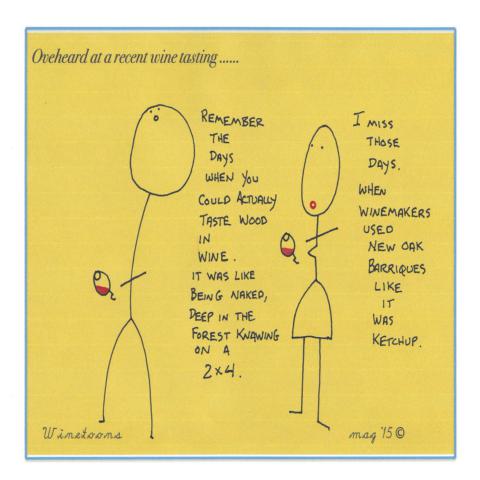 Oveheard at a recent wine tasting ......
REMEMBER
THE
DAYS
WHEN YOU
COULD ACTUALLY
TASTE WOOD
IN
WINE.
IT WAS LIKE
BEING NAKED,
DEEP IN THE
FOREST KNAWING
ON A
2x4.
I MISS
THOSE
DAYS.
WHEN
WINEMAKERS
USED
NEW OAK
BARRIQUES
LIKE
IT
WAS
KETCHUP.
Winetoons
mag '15 ©